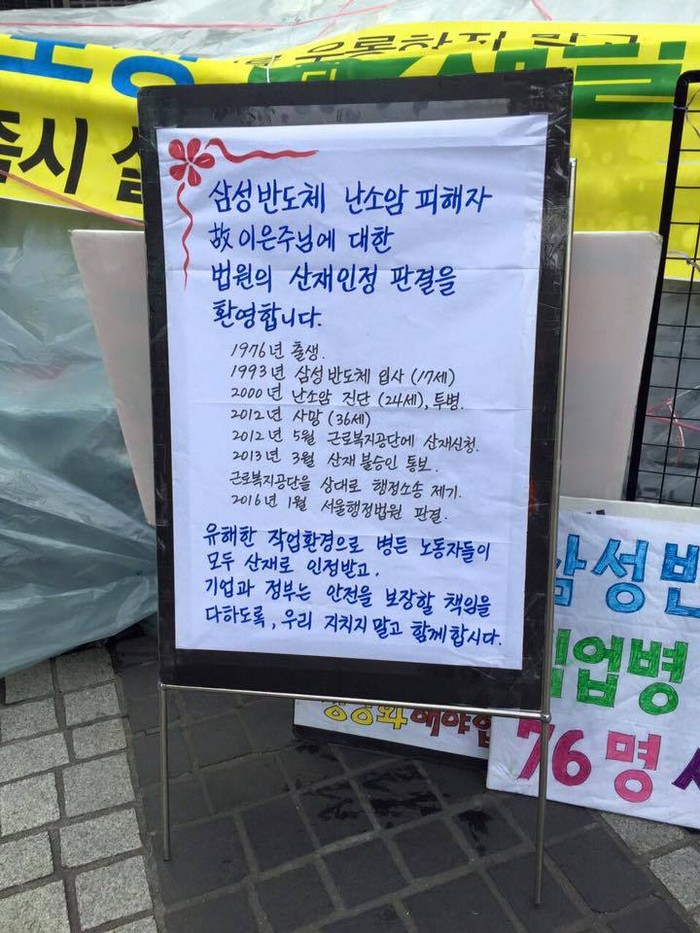 즉시 설
삼성반도체 난소암 피해자
故 이은주님에 대한
법원의 산재인정 판결을
환영합니다.
1976년 출생.
1993년 삼성반도체 입사 (17세)
2000년 난소암 진단 (24세), 투병.
2012년 사망 (36세)
2012년 5월 근로복지공단에 산재신청.
2013년 3월 산재 불승인 통보.
근로복지공단을 상대로 행정소송 제기.
2016년 1월 서울행정법원 판결.
유해한 작업환경으로 병든 노동자들이
모두 산재로 인정받고.
기업과 정부는 안전을 보장할 책임을
다하도록, 우리 지치지 말고 함께합시다.
삼성반
직업병
76명 사
해야합